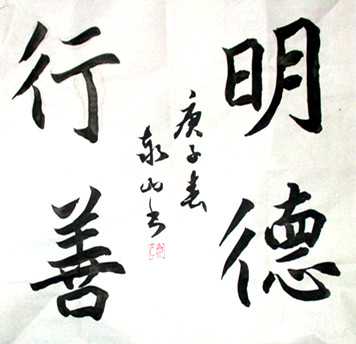 明德
行善
庚子春
泉山书